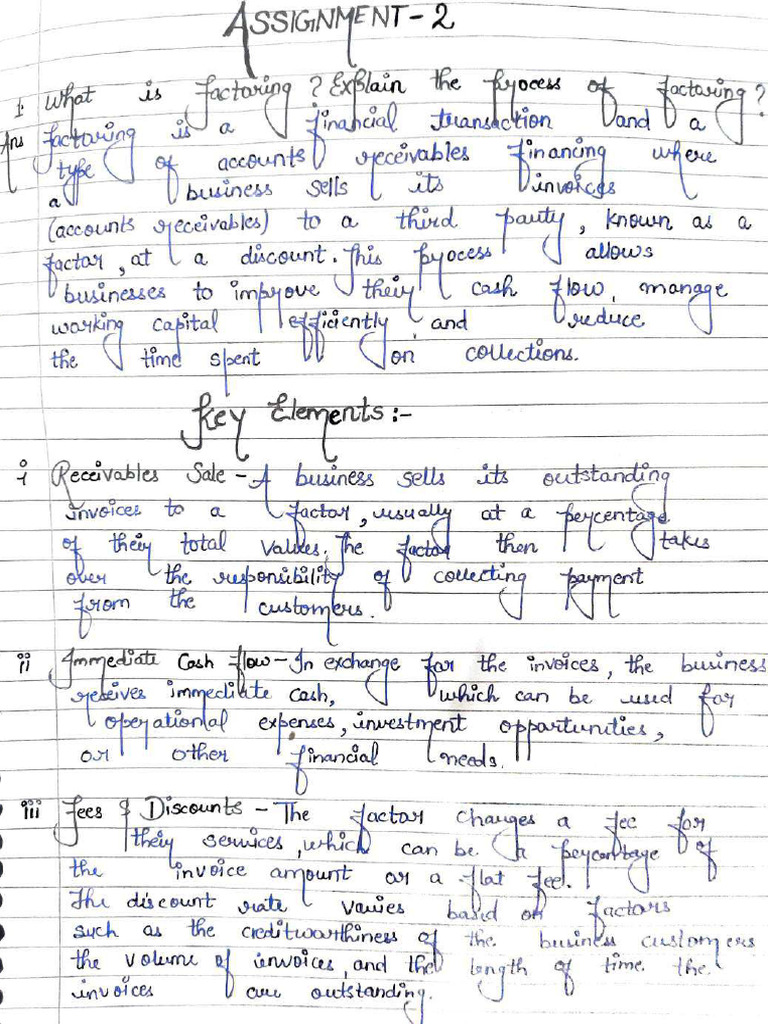 ASSIGNMENT-2
1. What is factoring? Explain the process of factoring?
Ans factoring is a financial transaction and a
type of accounts receivables financing where
a business sells its invoices
(accounts receivables) to a third party, known as a
factor, at a discount. This process allows
businesses to improve their cash flow, manage
working capital efficiently, and reduce
the time spent on collections.
Key Elements:-
i Receivables Sale - A business sells its outstanding
invoices to a factor, usually at a percentage
of their total values. The factor then takes
over the responsibility of collecting payment
from the customers.
ii Immediate Cash flow - In exchange for the invoices, the business
receives immediate cash, which can be used for
operational expenses, investment opportunities,
or other financial needs.
iii Fees & Discounts - The factor charges a fee for
their services, which can be a percentage of
the invoice amount or a flat fee.
The discount rate varies based on factors
such as the creditworthiness of the business customers
the volume of invoices, and the length of time the
invoices are outstanding.